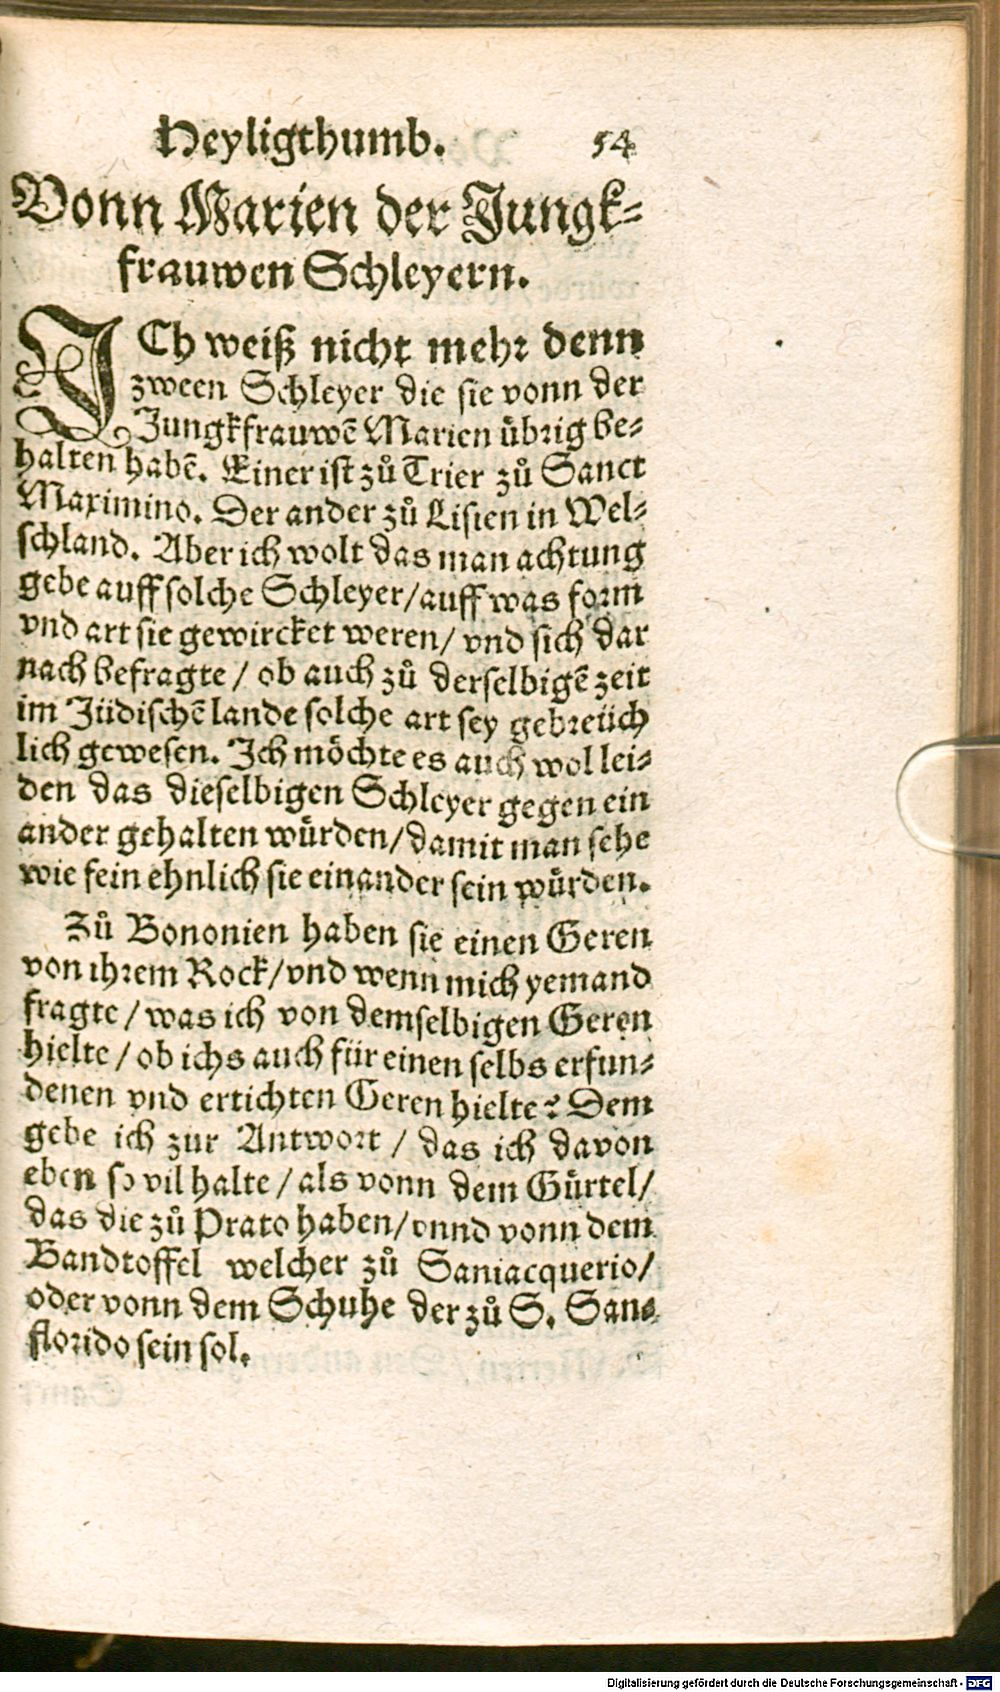 Heyligthumb. 54
Vonn Marien der Jungk-
frauwen Schleyern.
ICh weiß nicht mehr denn
zween Schleyer die sie vonn der
Jungkfrauwẽ Marien übrig be-
halten habẽ. Einer ist zů Trier zů Sanct
Maximino. Der ander zů Lisien in Wel-
schland. Aber ich wolt das man achtung
gebe auff solche Schleyer/auff was form
vnd art sie gewircket weren/ vnd sich dar
nach befragte/ ob auch zů derselbigẽ zeit
im Jüdischẽ lande solche art sey gebreüch
lich gewesen. Ich möchte es auch wol lei-
den das dieselbigen Schleyer gegen ein
ander gehalten würden/damit man sehe
wie fein ehnlich sie einander sein würden.
Zů Bononien haben sie einen Geren
von ihrem Rock/vnd wenn mich yemand
fragte/was ich von demselbigen Geren
hielte/ob ichs auch für einen selbs erfun-
denen vnd ertichten Geren hielte? Dem
gebe ich zur Antwort/ das ich davon
eben so vil halte/als vonn dem Gürtel/
das die zů Prato haben/vnnd vonn dem
Bandtoffel welcher zů Saniacquerio/
oder vonn dem Schuhe der zů S. San-
florido sein sol.
Digitalisierung gefördert durch die Deutsche Forschungsgemeinschaft - DFG